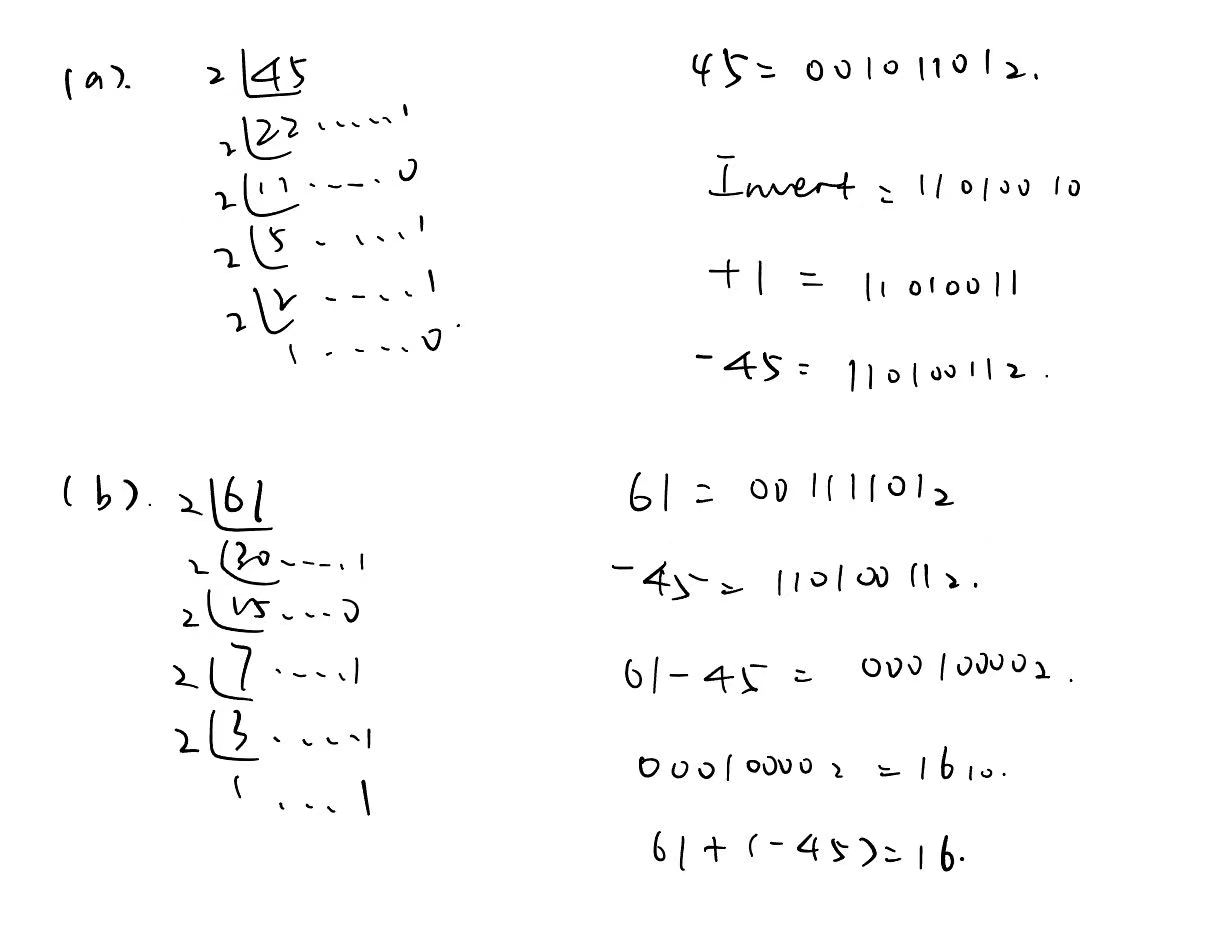 (a). 2 45
2 22 ......1
2 11 ..... 0
2 5 ......1
2 2 .....1
1 ..... 0.
45 = 00101101 2.
Invert = 11010010
+1 = 11010011
-45 = 11010011 2.
(b). 2 61
2 30 .....1
2 15 .... 0
2 7 .....1
2 3 .....1
1 ....1
61 = 00111101 2
-45 = 11010011 2.
61-45 = 00010000 2.
00010000 2 = 16 10.
61+(-45)=16.